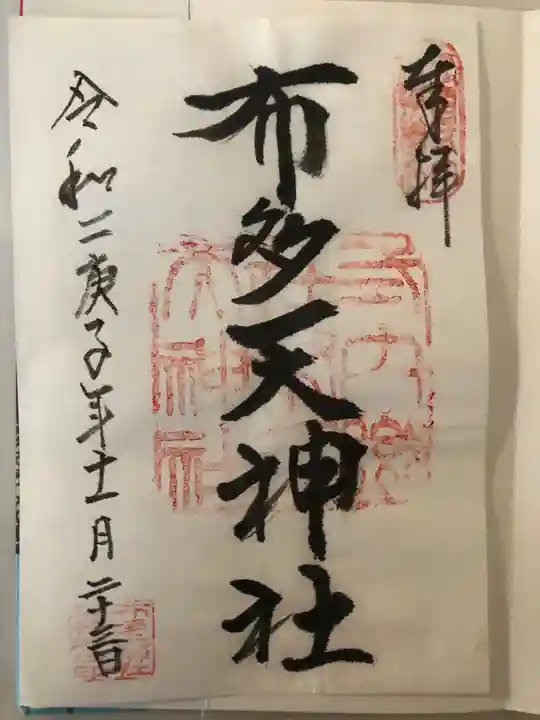 奉拝
布多天神社
令和二庚子年十一月二十三日